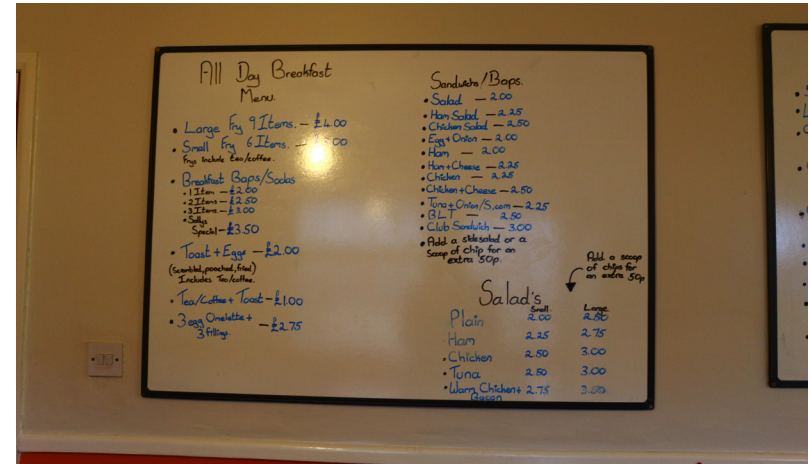 All Day Breakfast
Menu.
• Large Fry 9 Items. — £4.00
• Small Fry 6 Items. — .00
Frys include tea/coffee.
• Breakfast Baps/Sodas
• 1 Item — £2.00
• 2 Items — £2.50
• 3 Items — £3.00
• Sallys
Special — £3.50
• Toast + Eggs — £2.00
(Scrambled, poached, fried)
Includes Tea/coffee.
• Tea/Coffee + Toast — £1.00
• 3 egg Omelette +
3 fillings. — £2.75
Sandwichs/Baps.
• Salad — 2.00
• Ham Salad — 2.25
• Chicken Salad — 2.50
• Egg + Onion — 2.00
• Ham — 2.00
• Ham + Cheese — 2.25
• Chicken — 2.25
• Chicken + Cheese — 2.50
• Tuna + Onion/S.corn — 2.25
• BLT — 2.50
• Club Sandwich — 3.00
• Add a sidesalad or a
Scoop of chip for an
extra 50p.
Add a scoop
of chips for
an extra 50p
Salad's
Small. Large.
Plain 2.00 2.50
• Ham 2.25 2.75
• Chicken 2.50 3.00
• Tuna 2.50 3.00
• Warm Chicken + 2.75 3.50
Bacon